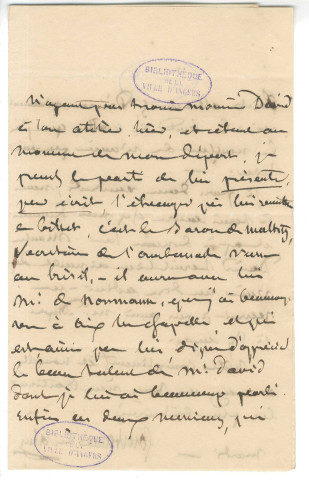 BIBLIOTHÈQUE
DE LA
VILLE D'ANGERS
n'ayant pas trouvé monsieur David
à son atelier hier, et étant au
moment de mon départ, je
prends le parti de lui présenter
par écrit l'étranger qui lui remettra
ce billet, c'est le Baron de Maltitz,
Secrétaire de l'ambassade russe
au brésil, - il aura avec lui
Mr. de Normann, que j'ai beaucoup
vu à aix la chapelle, et qui
est ainsi que lui, digne d'apprécier
le beau talent de Mr David
dont je lui ai beaucoup parlé.
Enfin ces deux messieurs, qui
BIBLIOTHÈQUE
DE LA
VILLE D'ANGERS